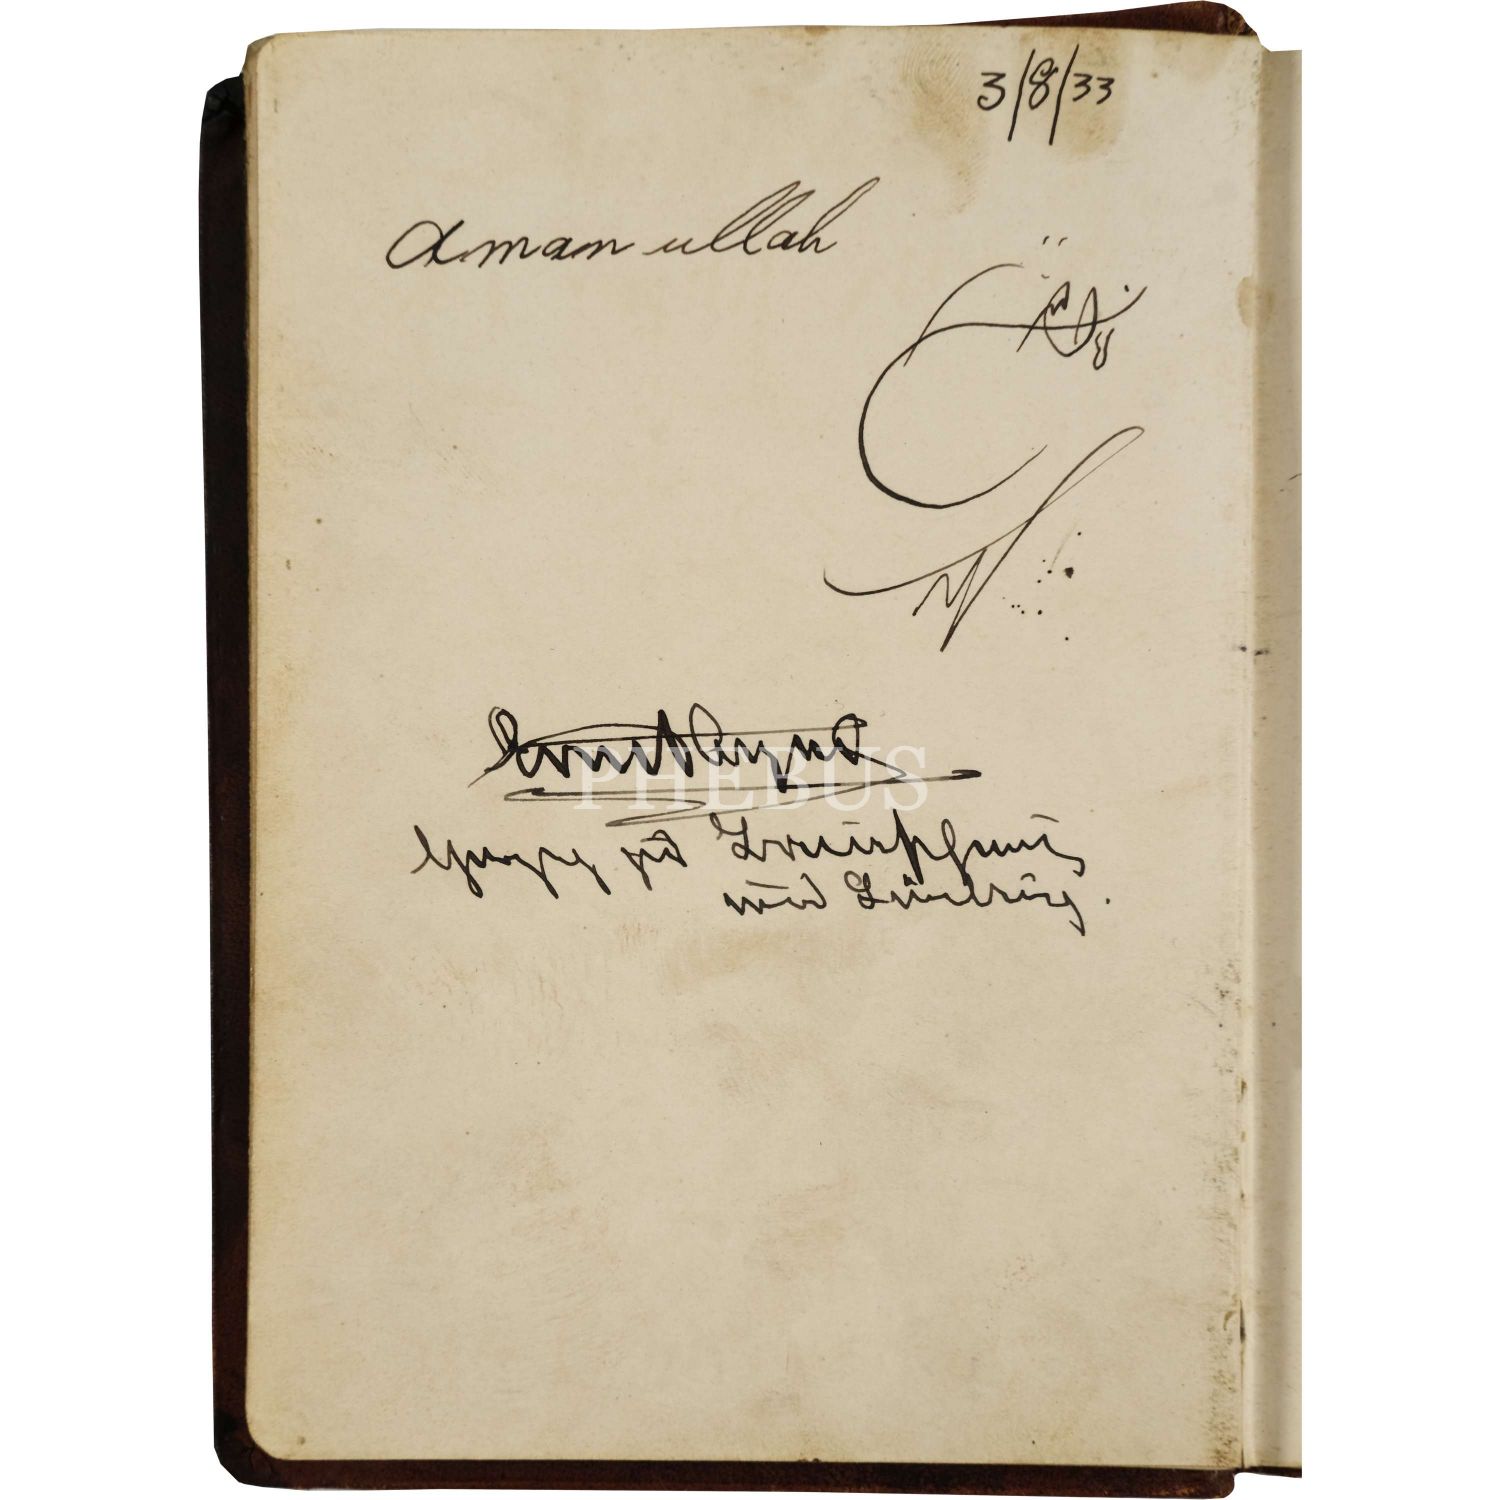 3/8/33
Amanullah
Ernst August
Herzog zu Braunschweig
und Lüneburg.
PHEBUS